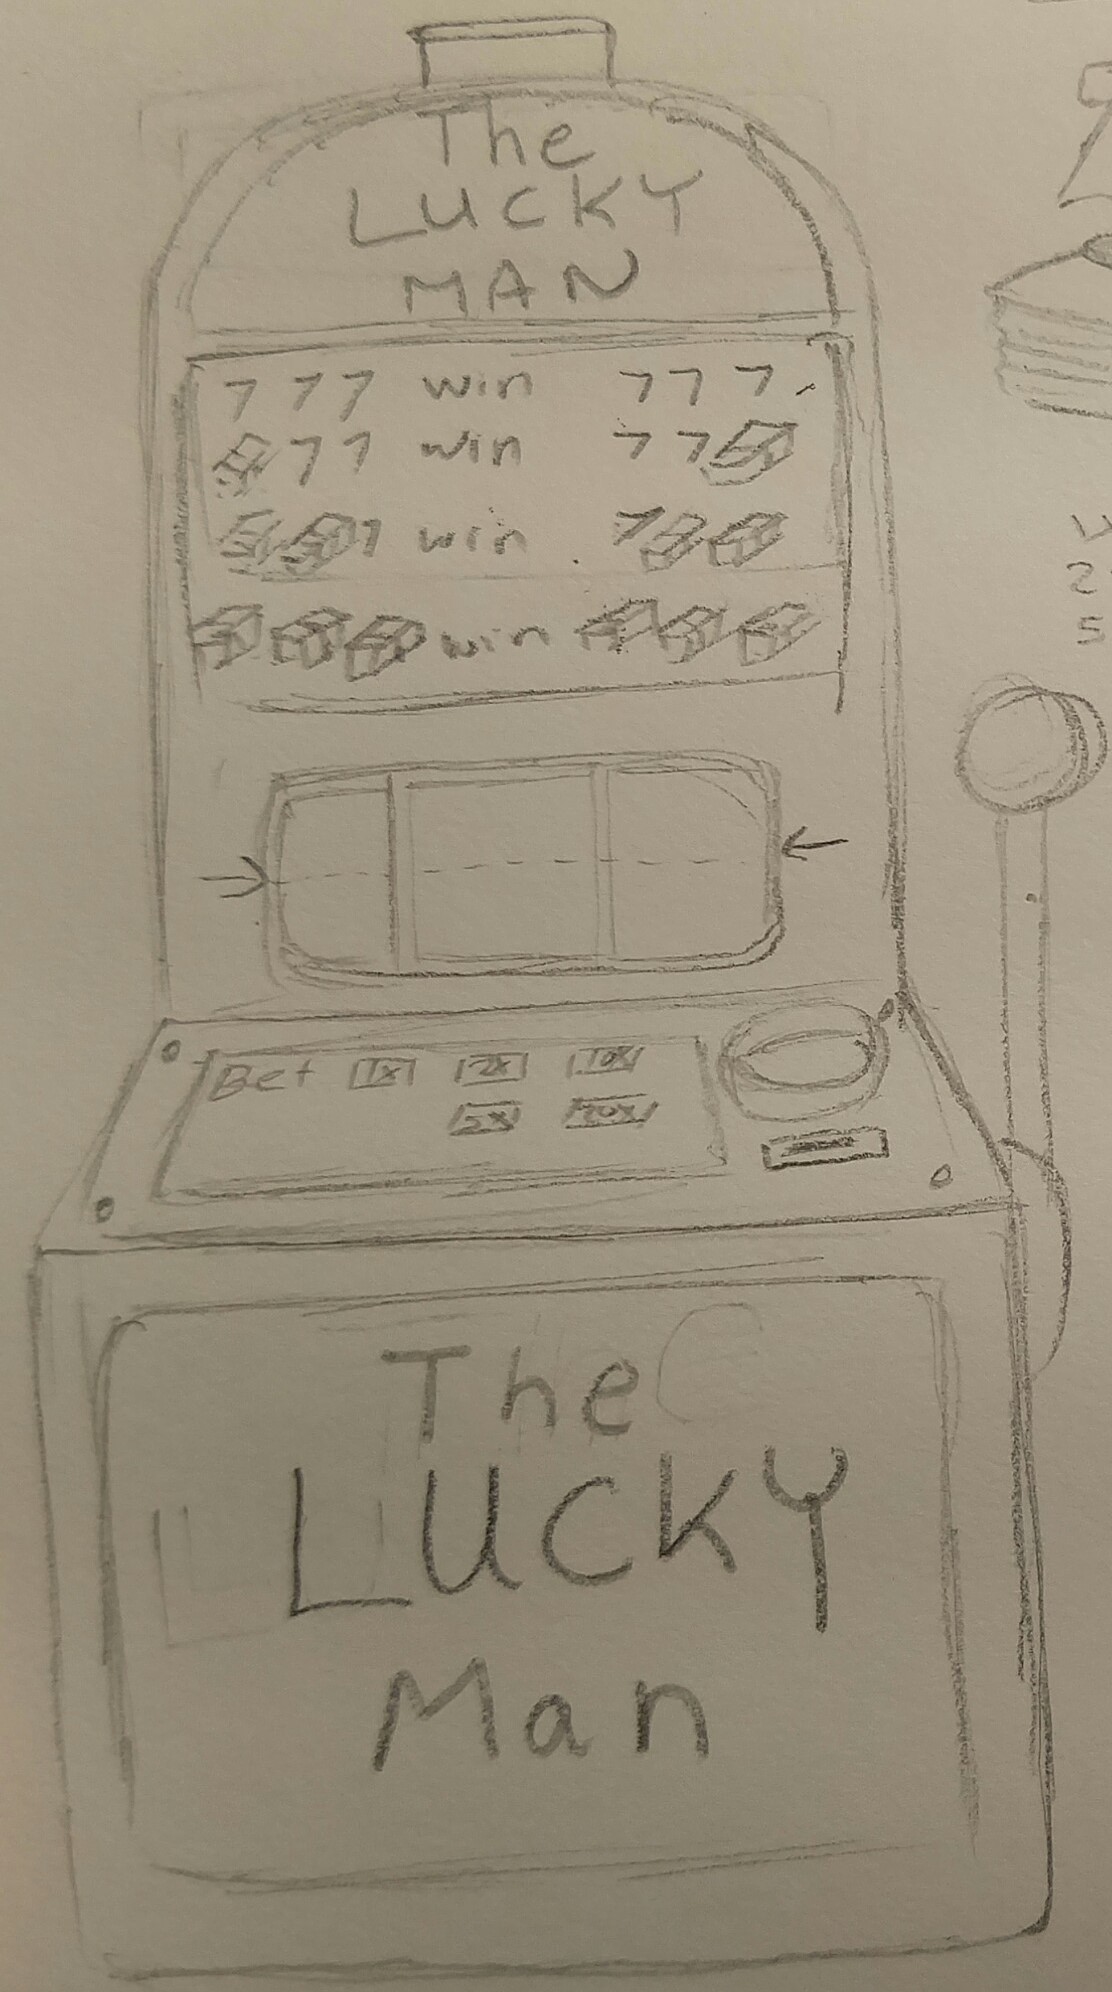 The
LUCKY
MAN
777 win 777
77 win 77
7 win 7
win
Bet 1x 2x 10x
5x 20x
The
LUCKY
Man
2
5